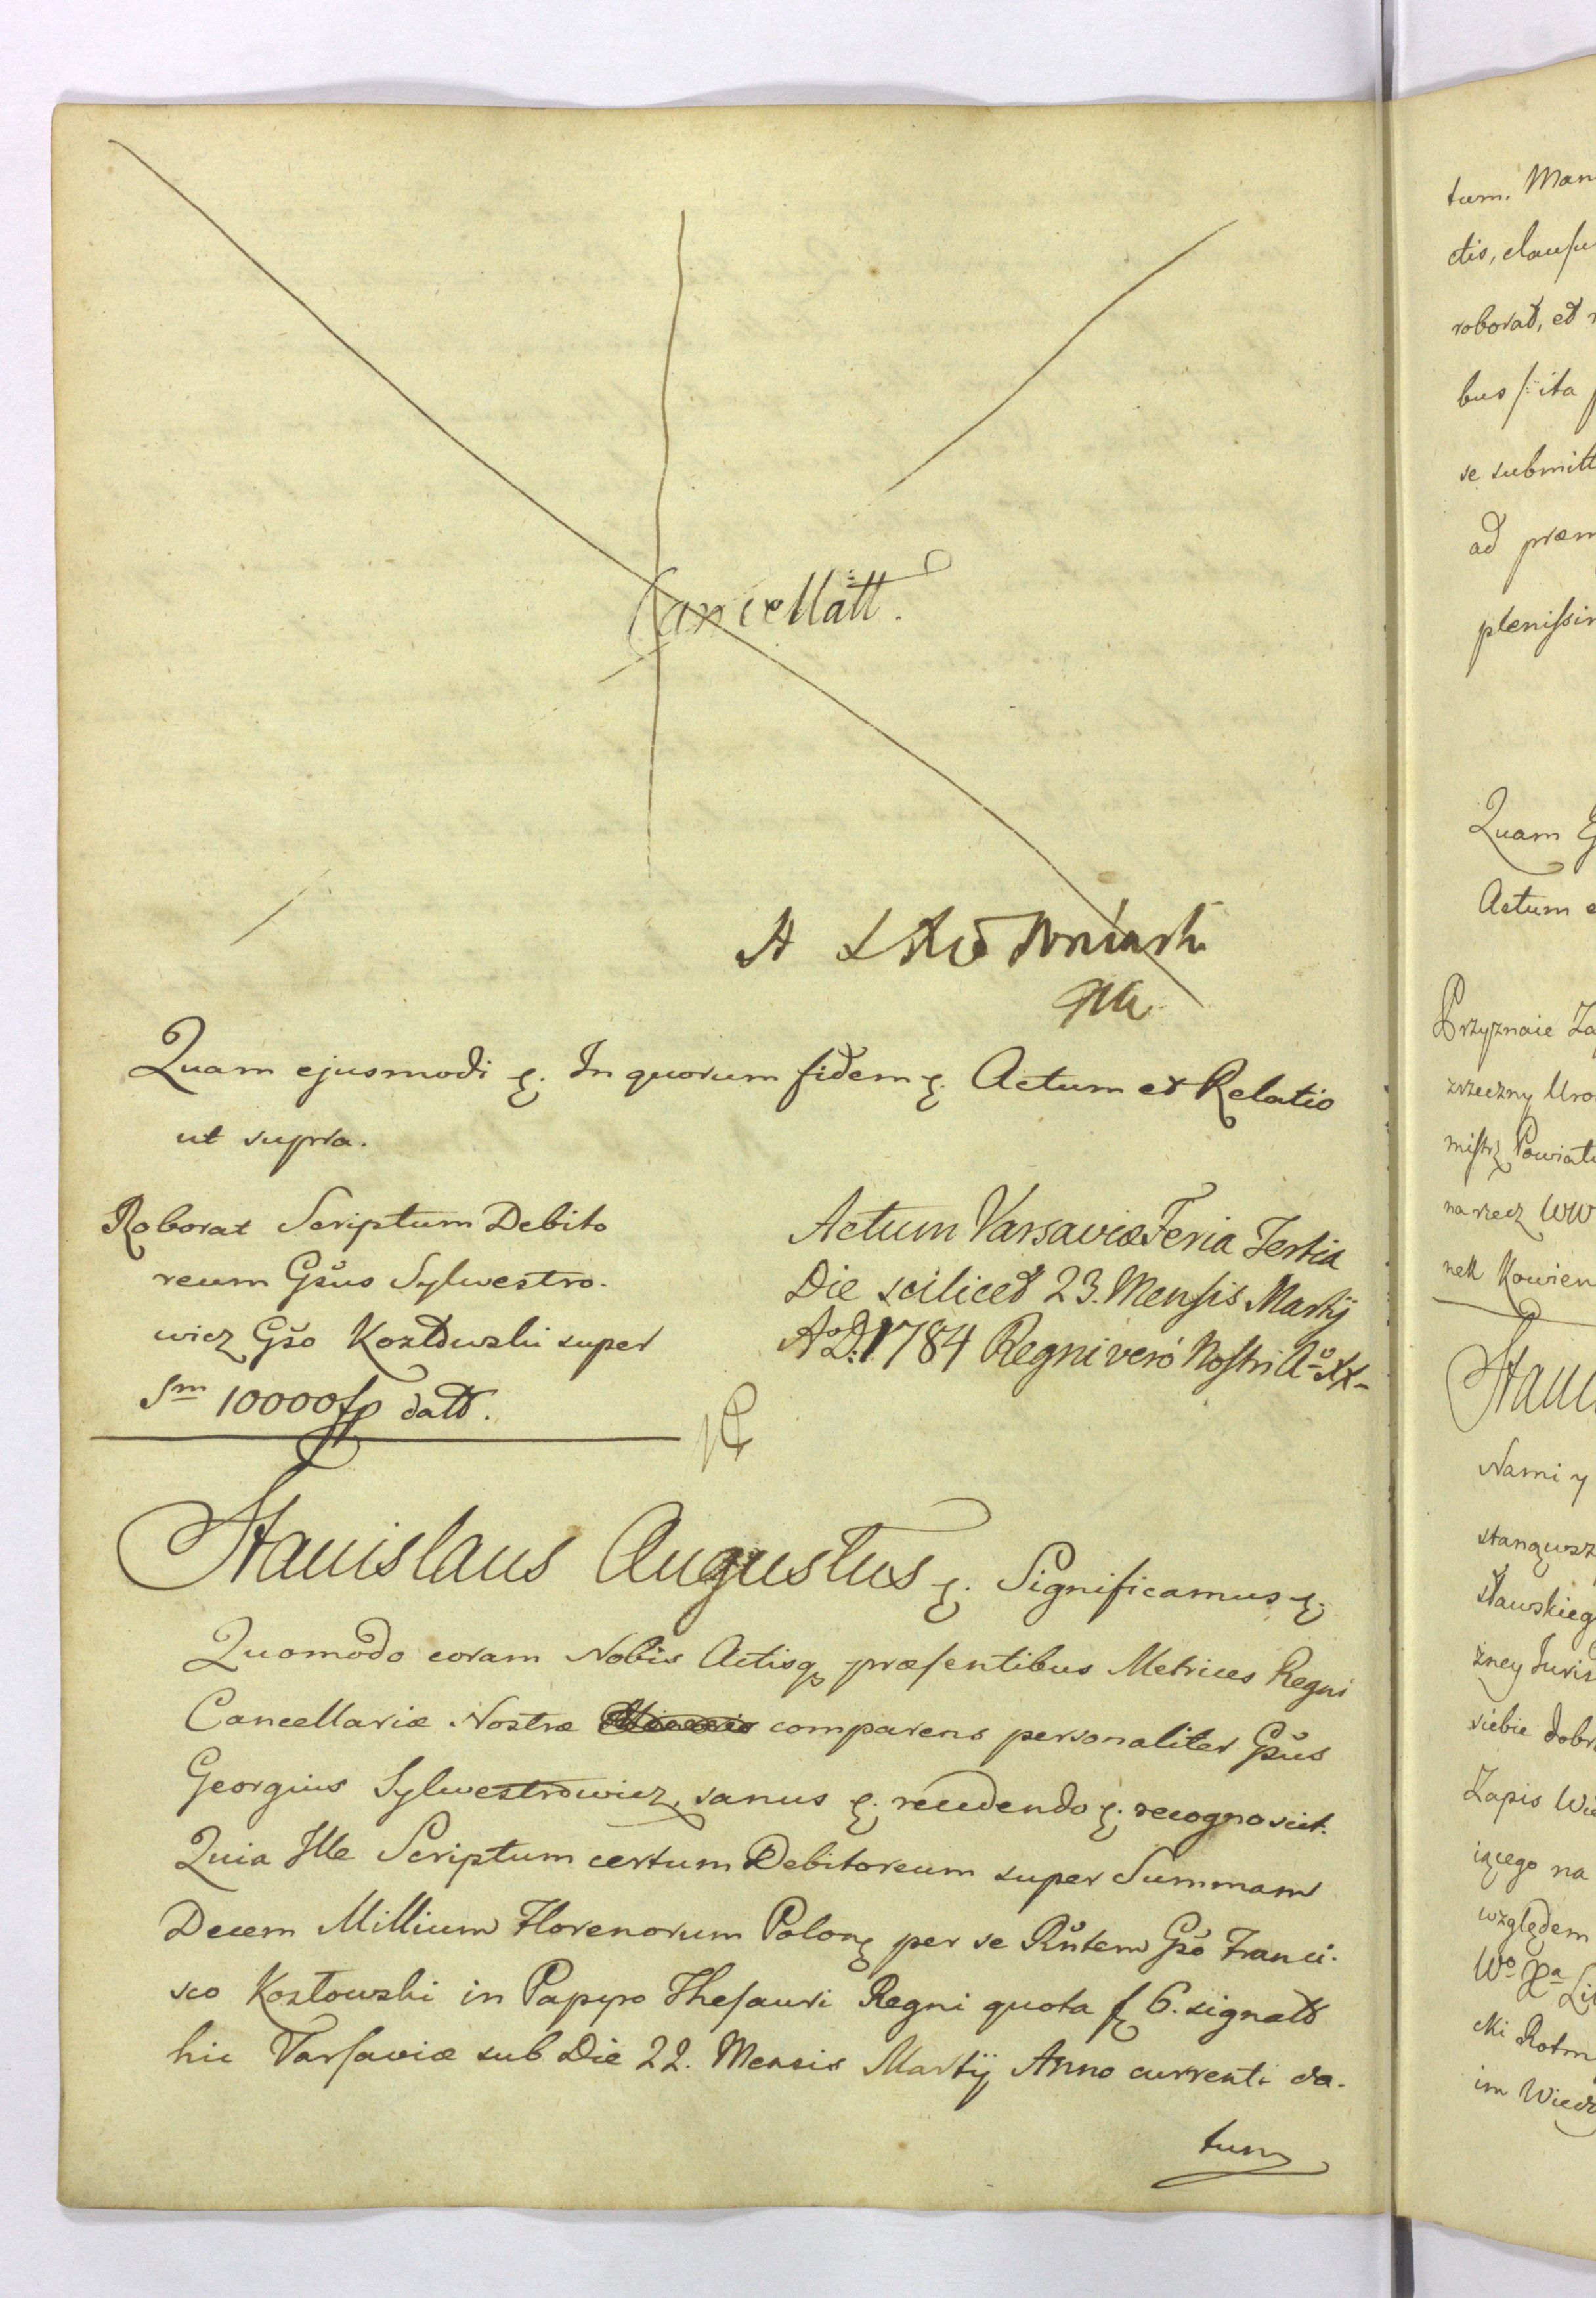 Cancellatt.
Quam ejusmodi ę. In quorum fidem ę. Actum et Relatio
ut supra.
Roborat Scriptum Debito
reum Gsus Sylwestro-
wicz Gso Kozłowski super
Sm 10000 fp datt.
Actum Varsaviæ Feria Tertia
Die scilicet 23. Mensis Martij
Ao D: 1784 Regni veró Nostri Ao XX-
Stanislaus Augustus ę. Significamus ę.
Quomodo coram Nobis Actisq præsentibus Metrices Regni
Cancellariæ Nostræ comparens personaliter Gsus
Georgius Sylwestrowicz, sanus ę. recedendo ę. recognovit.
Quia Ille Scriptum certum Debitoreum super Summam
Decem Millium Florenorum Polonę per se Rntem Gso Franci-
sco Kozłowski in Papyro Thesauri Regni quota f 6. signatt
hic Varsaviæ sub Die 22. Mensis Martij Anno currenti da-
tum
tum. Man
ctis, clausu
roborat, et
bus /: ita
se submitt
ad præm
plenissim
Quam
Actum e
Przyznaie Za
zrzeczny Uro
mistrz Powiatu
na rzecz WW
nek Kowien
Stani
Nami y
stanąwsz
sławskieg
żney Juris
siebie dobro
Zapis Wie
iącego na
względem
Wo Xa Li
cki Rotm
im Wiecz